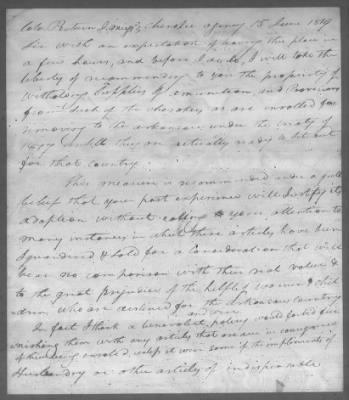 Colo Return J. Meigs, Cherokee agency 15 June 1819
Sir With an expectation of leaving this place in
a few hours, and before I do so, I will take the
liberty of recommending to you the propriety of
witholding Supplies of Ammunition, and Provisions
from such of the cherokees as are enrolled for
removing to the arkansas under the treaty of
1817 untill they are actually ready to set out
for that country.
This measure is recommended under a full
belief that your past experience will Justify its
adoption without calling to your attention to
many instances in which these articles have been
squandered & sold for a Consideration that will
bear no comparison with their real value &
to the great prejudice of the helpless women & chil
dren, who are destined for the arkansas country
In fact I think a benevolent policy would forbid fur
nishing them with any articles that are in consequence
of their being enroled, unless it were some of the impliments of
Husbandry or other articles of indispensable